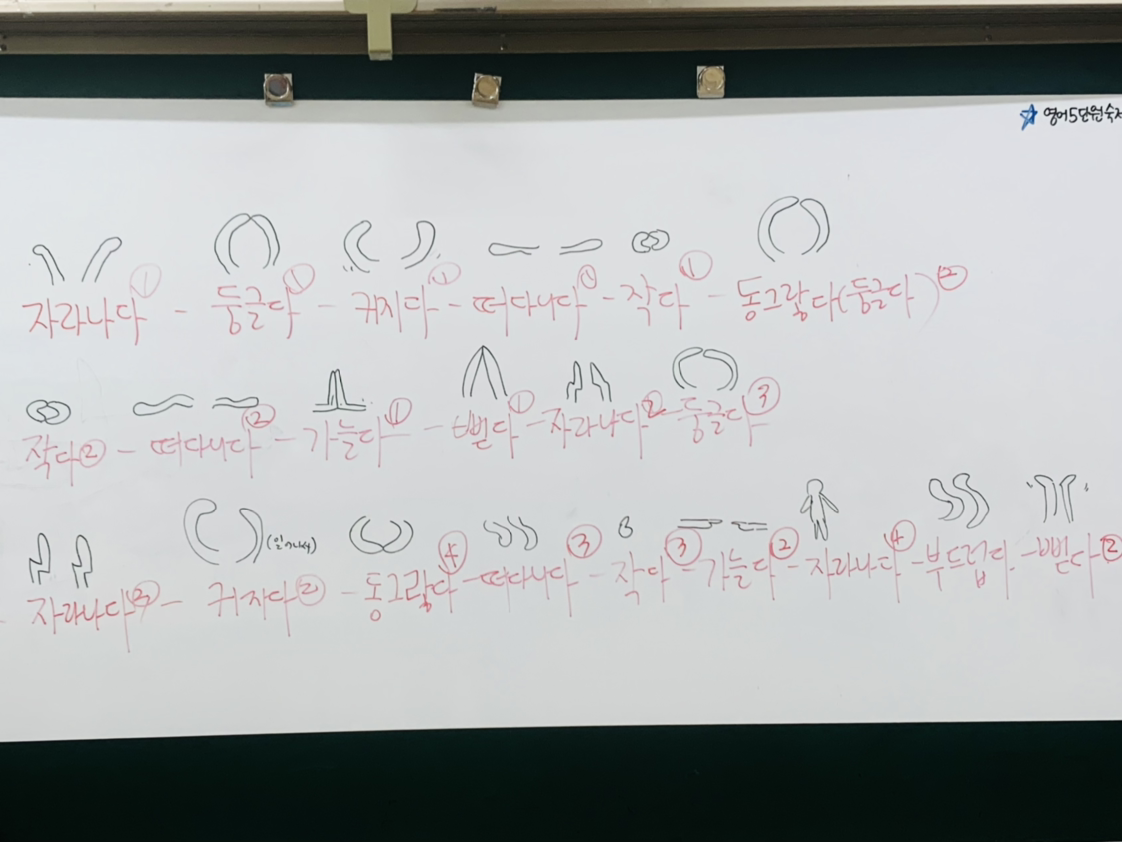 영어5단원숙제
자라나다① - 둥글다① - 커지다① - 떠다니다① - 작다① - 동그랗다(둥글다)②
작다② - 떠다니다② - 가늘다① - 뻗다① - 자라나다② - 둥글다③
자라나다③ - 커지다② - 동그랗다④ - 떠다니다③ - 작다③ - 가늘다② - 자라나다④ - 부드럽다 - 뻗다②
(일어나서)